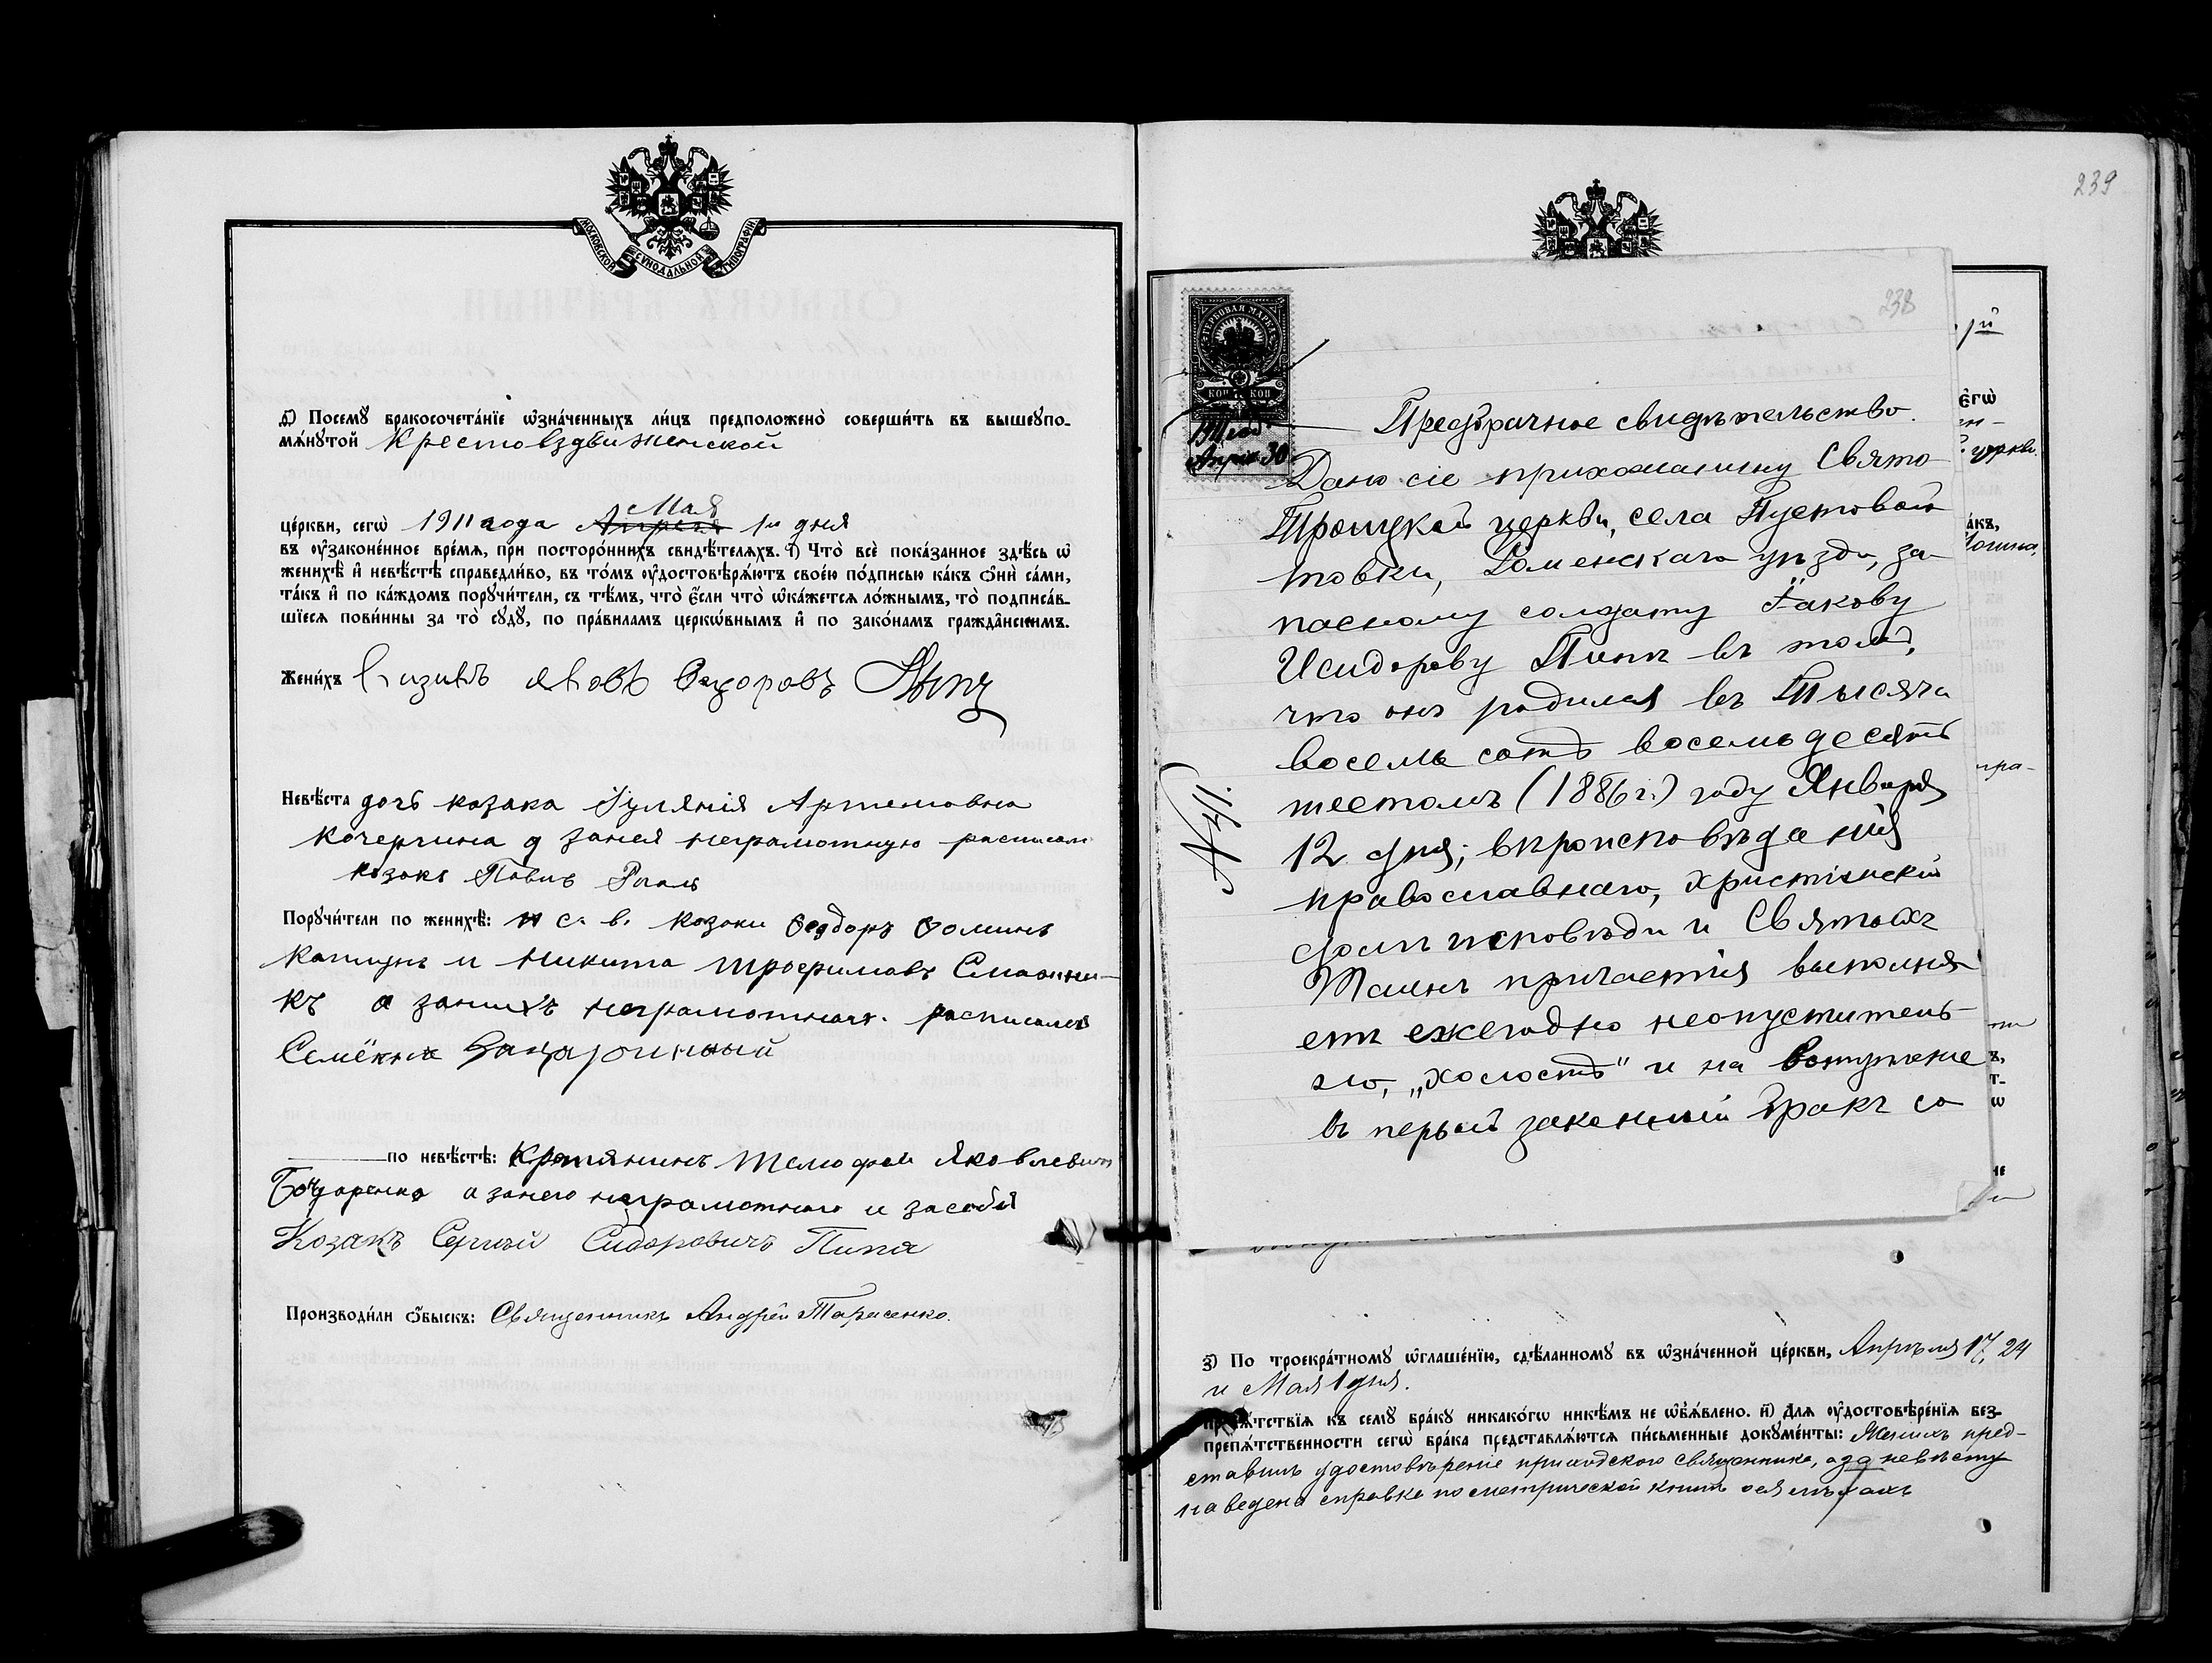 МОСКОВСКОЙ СѴНОДАЛЬНОЙ ТИПОГРАФІИ
ѕ҃) Посемꙋ̀ бракосочета́нїе ѡ҆зна́ченныхъ ли́цъ предположено̀ соверши́ть въ вышеꙋпо-
мѧ́нꙋтой Крестовздвиженской
Мая
це́ркви, сегѡ̀ 1911 года Апреля 1го дня
въ ᲂу҆законе́нное вре́мѧ, при посторо́ннихъ свидѣ́телѧхъ. з҃) Что̀ всѐ пока́занное здѣ́сь ѡ҆
женихѣ̀ и҆ невѣ́стѣ справедли́во, въ то́мъ ᲂу҆достовѣрѧ́ютъ свое́ю по́дписью ка́къ ѻ҆нѝ са́ми,
та́къ и҆ по ка́ждомъ порꙋчи́тели, съ тѣ́мъ, что̀ є҆́сли что̀ ѡ҆ка́жетсѧ ло́жнымъ, то̀ подписа́в-
шїесѧ пови́нны за то̀ сꙋдꙋ̀, по пра́виламъ церкѡ́внымъ и҆ по зако́намъ гражда̂нскимъ.
Жени́хъ
Невѣ́ста дочь козака Іулянія Артемовна
Кочергина а за нея неграмотную расписал
козакъ Павилъ
Порꙋчи́тели по женихѣ̀: с. в. козаки Федоръ Фоминъ
и Никита Трофимовъ
къ а за нихъ неграмотныхъ расписался
Семёнъ
по невѣ́стѣ: Крестянинъ Тимофей Яковлевичъ
Бондаренко а за него неграмотного и за себя
Козакъ Сергѣй Сидоровичъ Пипа
Производи́ли ѻ҆́быскъ: Священникъ Андрей Тарасенко.
239
238
ГЕРБОВАЯ МАРКА
1911 год
Апрѣл 30
Предбрачное свидѣтельство.
Дано сіе прихожанину Свято
Троицкой церкви, села Пустовой
товки, Роменскаго уѣзда, за-
пасному солдату Іакову
Исидорову Пипѣ въ томъ,
что онъ родился въ Тысяча
восемь сотъ восемьдесятъ
шестомъ (1886 г.) году Января
12 дня; вѣроисповѣданія
православнаго, христіанскій
долгъ исповѣди и Святыхъ
Таинъ причастія выполня-
етъ ежегодно неопуститель-
но, „холостъ" и на вступленіе
въ первый законный бракъ со
церкви.
з҃) По троекра́тномꙋ ѡ҆глаше́нїю, сдѣ́ланномꙋ въ ѡ҆зна́ченной це́ркви, Апрѣля 17, 24
и Мая 1 дня.
препѧ́тствїѧ къ семꙋ̀ бра́кꙋ никако́гѡ никѣ́мъ не ѡ҆б̾ѧ́влено. и҃) Длѧ ᲂу҆достовѣре́нїѧ без-
препѧ́тственности сегѡ̀ бра́ка представлѧ́ютсѧ пи́сьменные докꙋме́нты: Женихъ пред-
ставилъ удостовѣреніе приходского священника, а за невѣсту
наведена справка по метрической книгѣ